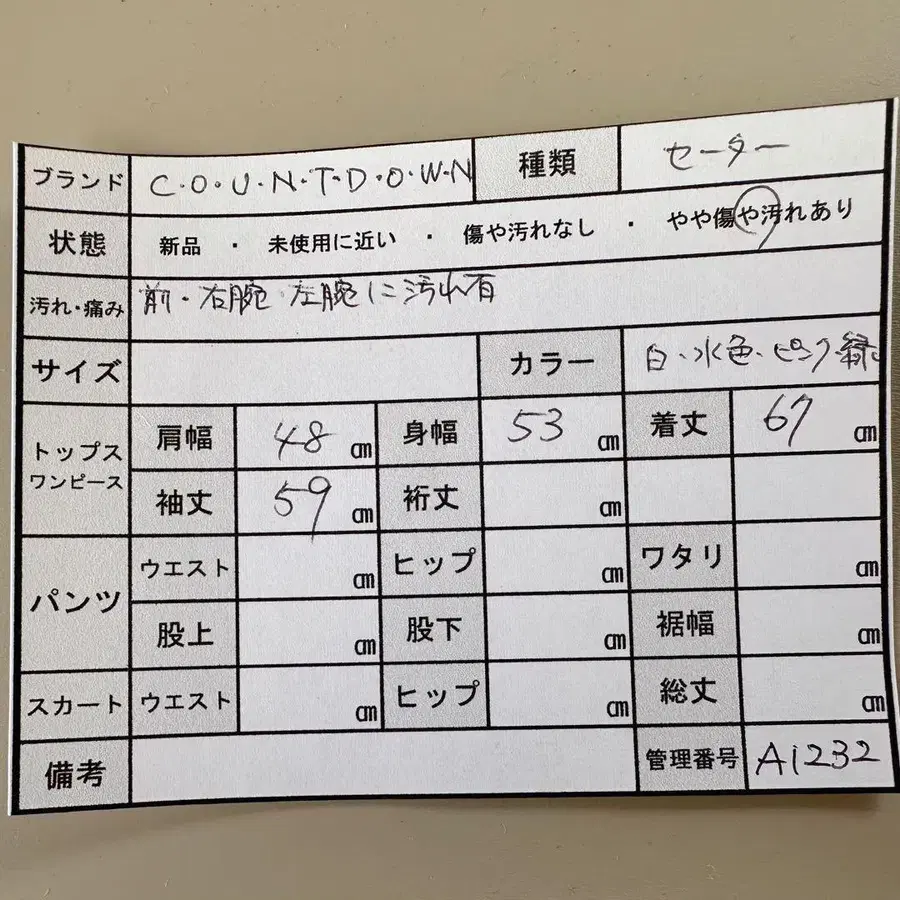 ブランド C・O・U・N・T・D・O・W・N 種類 セーター
状態 新品 ・ 未使用に近い ・ 傷や汚れなし ・ やや傷や汚れあり
汚れ・痛み 前・右腕 左腕に汚れ有
サイズ カラー 白・水色・ピンク・緑
トップス ワンピース 肩幅 48 cm 身幅 53 cm 着丈 67 cm
袖丈 59 cm 裄丈 cm
パンツ ウエスト cm ヒップ cm ワタリ cm
股上 cm 股下 cm 裾幅 cm
スカート ウエスト cm ヒップ cm 総丈 cm
備考 管理番号 A1232